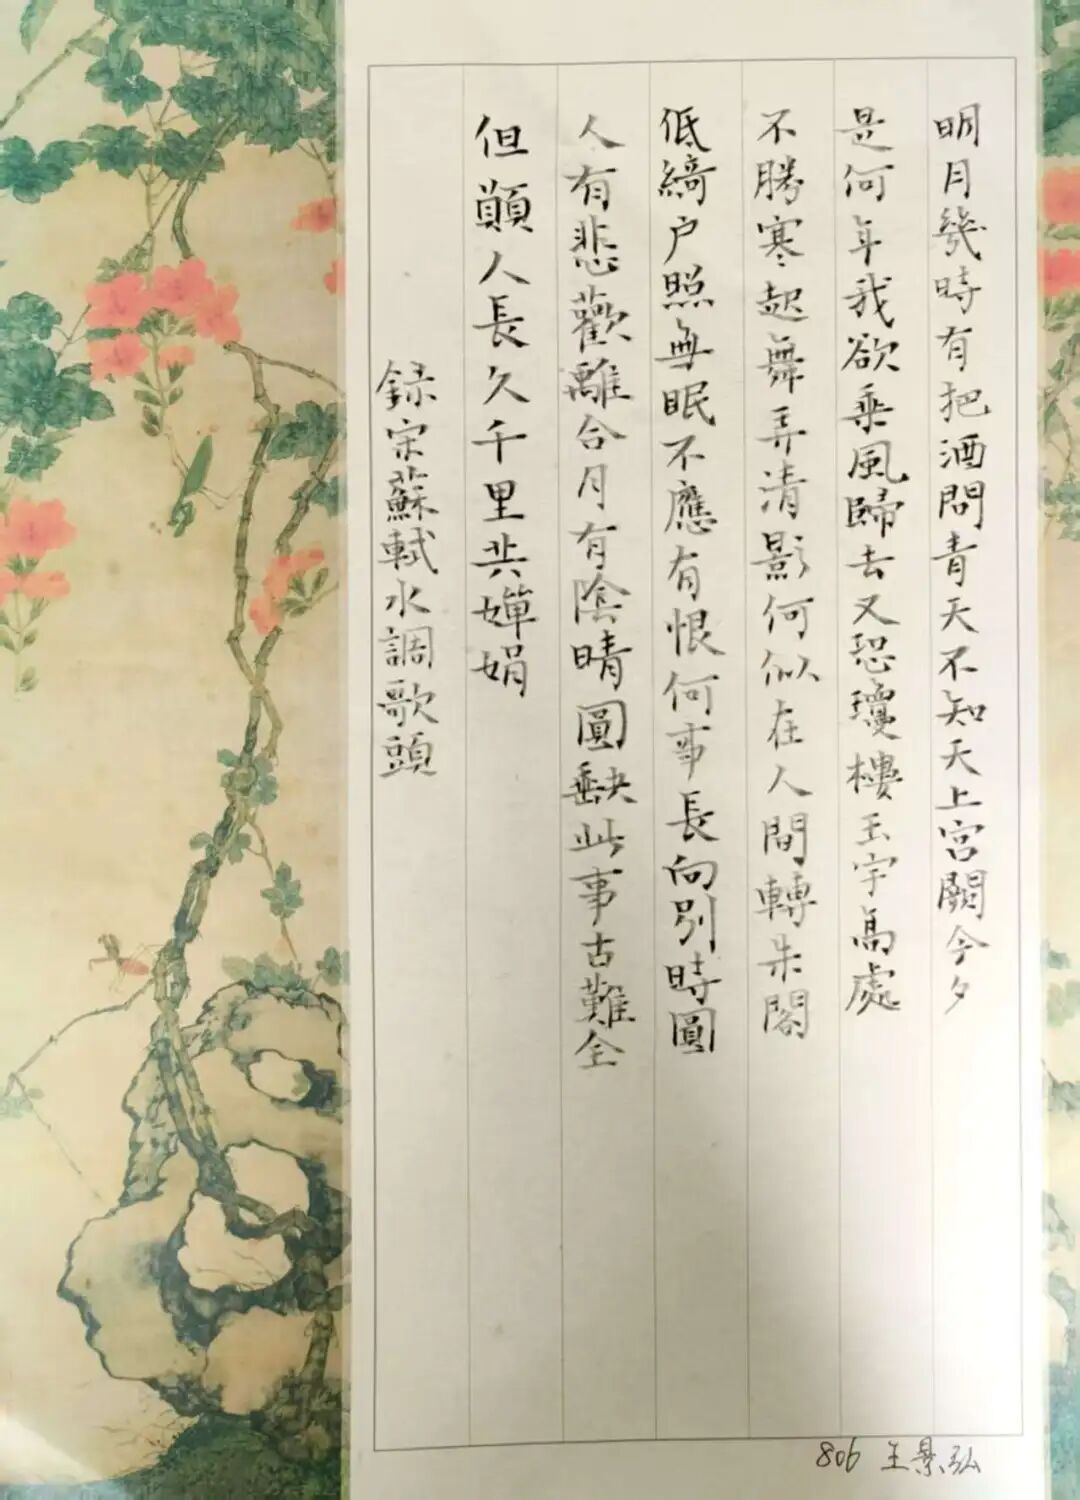 明月幾時有把酒問青天不知天上宮闕今夕
是何年我欲乘風歸去又恐瓊樓玉宇高處
不勝寒起舞弄清影何似在人間轉朱閣
低綺户照無眠不應有恨何事長向别時圓
人有悲歡離合月有陰晴圓缺此事古難全
但顚人長久千里共嬋娟
録宋蘇軾水調歌頭
806 王景弘